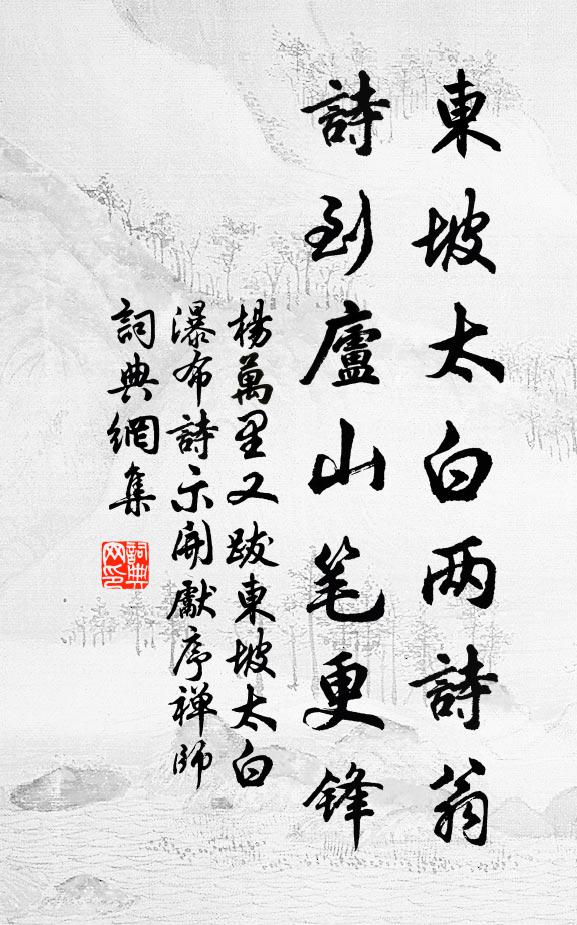 東坡太白两詩翁
詩到廬山笔更鋒
楊萬里又跋東坡太白
瀑布詩示開獻序禅師
詞典網集
詞典
网印